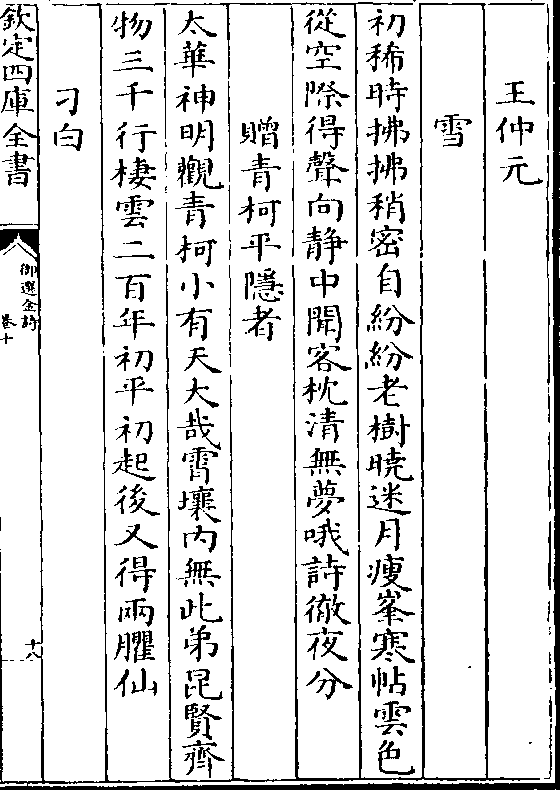 王仲元
雪
初稀時拂拂稍密自紛紛老樹曉迷月瘦峯寒帖雲色
從空際得聲向静中聞客枕清無夢哦詩徹夜分
贈青柯平隱者
太華神明觀青柯小有天大哉霄壤内無此弟昆賢齊
物三千行棲雲二百年初平初起後又得兩臞仙
刁白
欽定四庫全書
御選金詩
卷十
十八